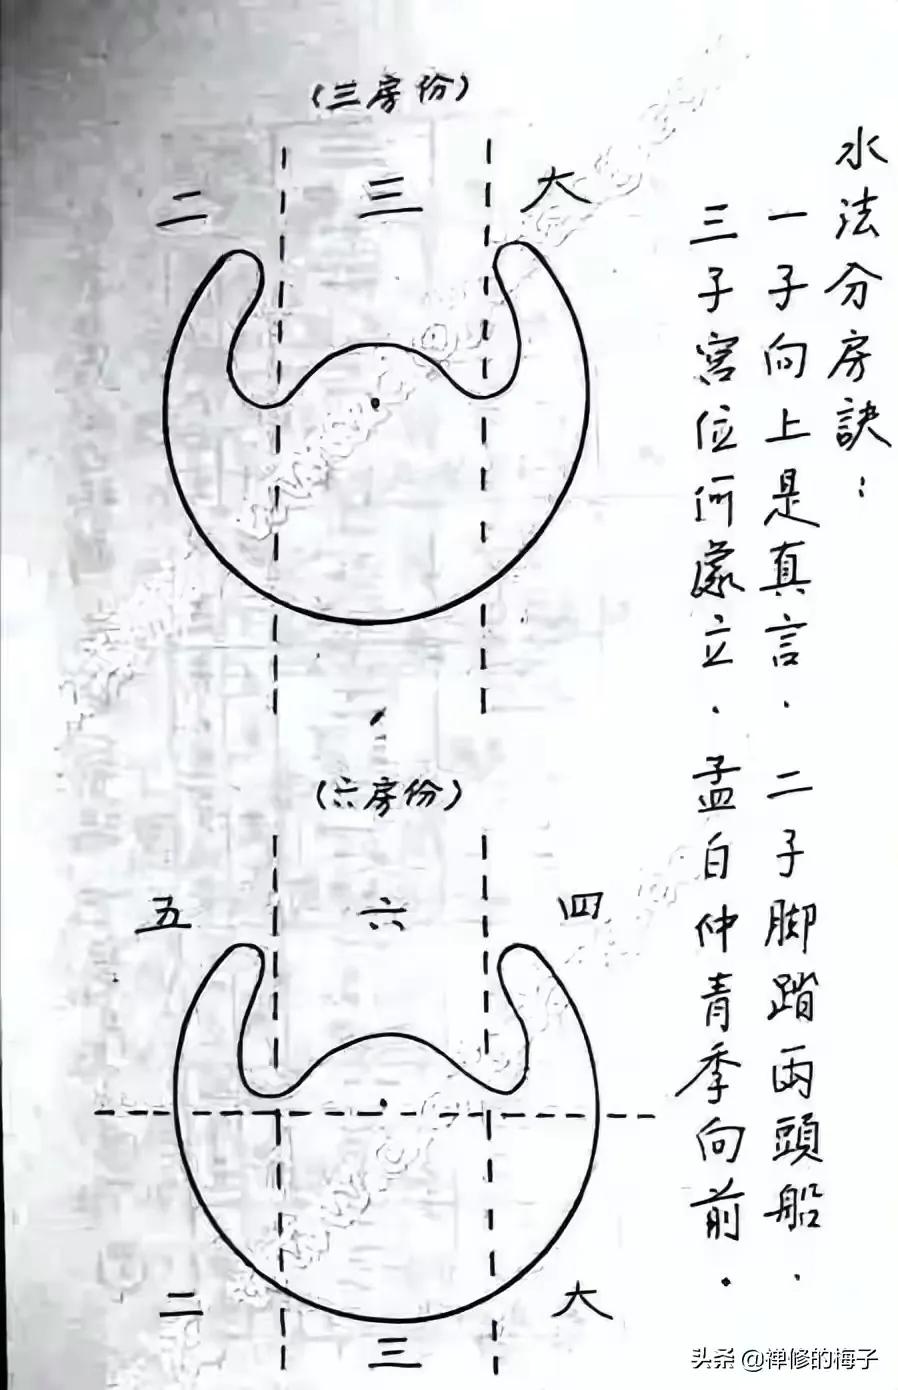 水法分房訣：
一子向上是真言．二子脚踏兩頭船．
三子宮位何處立．孟白仲青季向前．
（三房份）
二 三 大
（六房份）
五 六 四
二 三 大
头条 @禅修的梅子